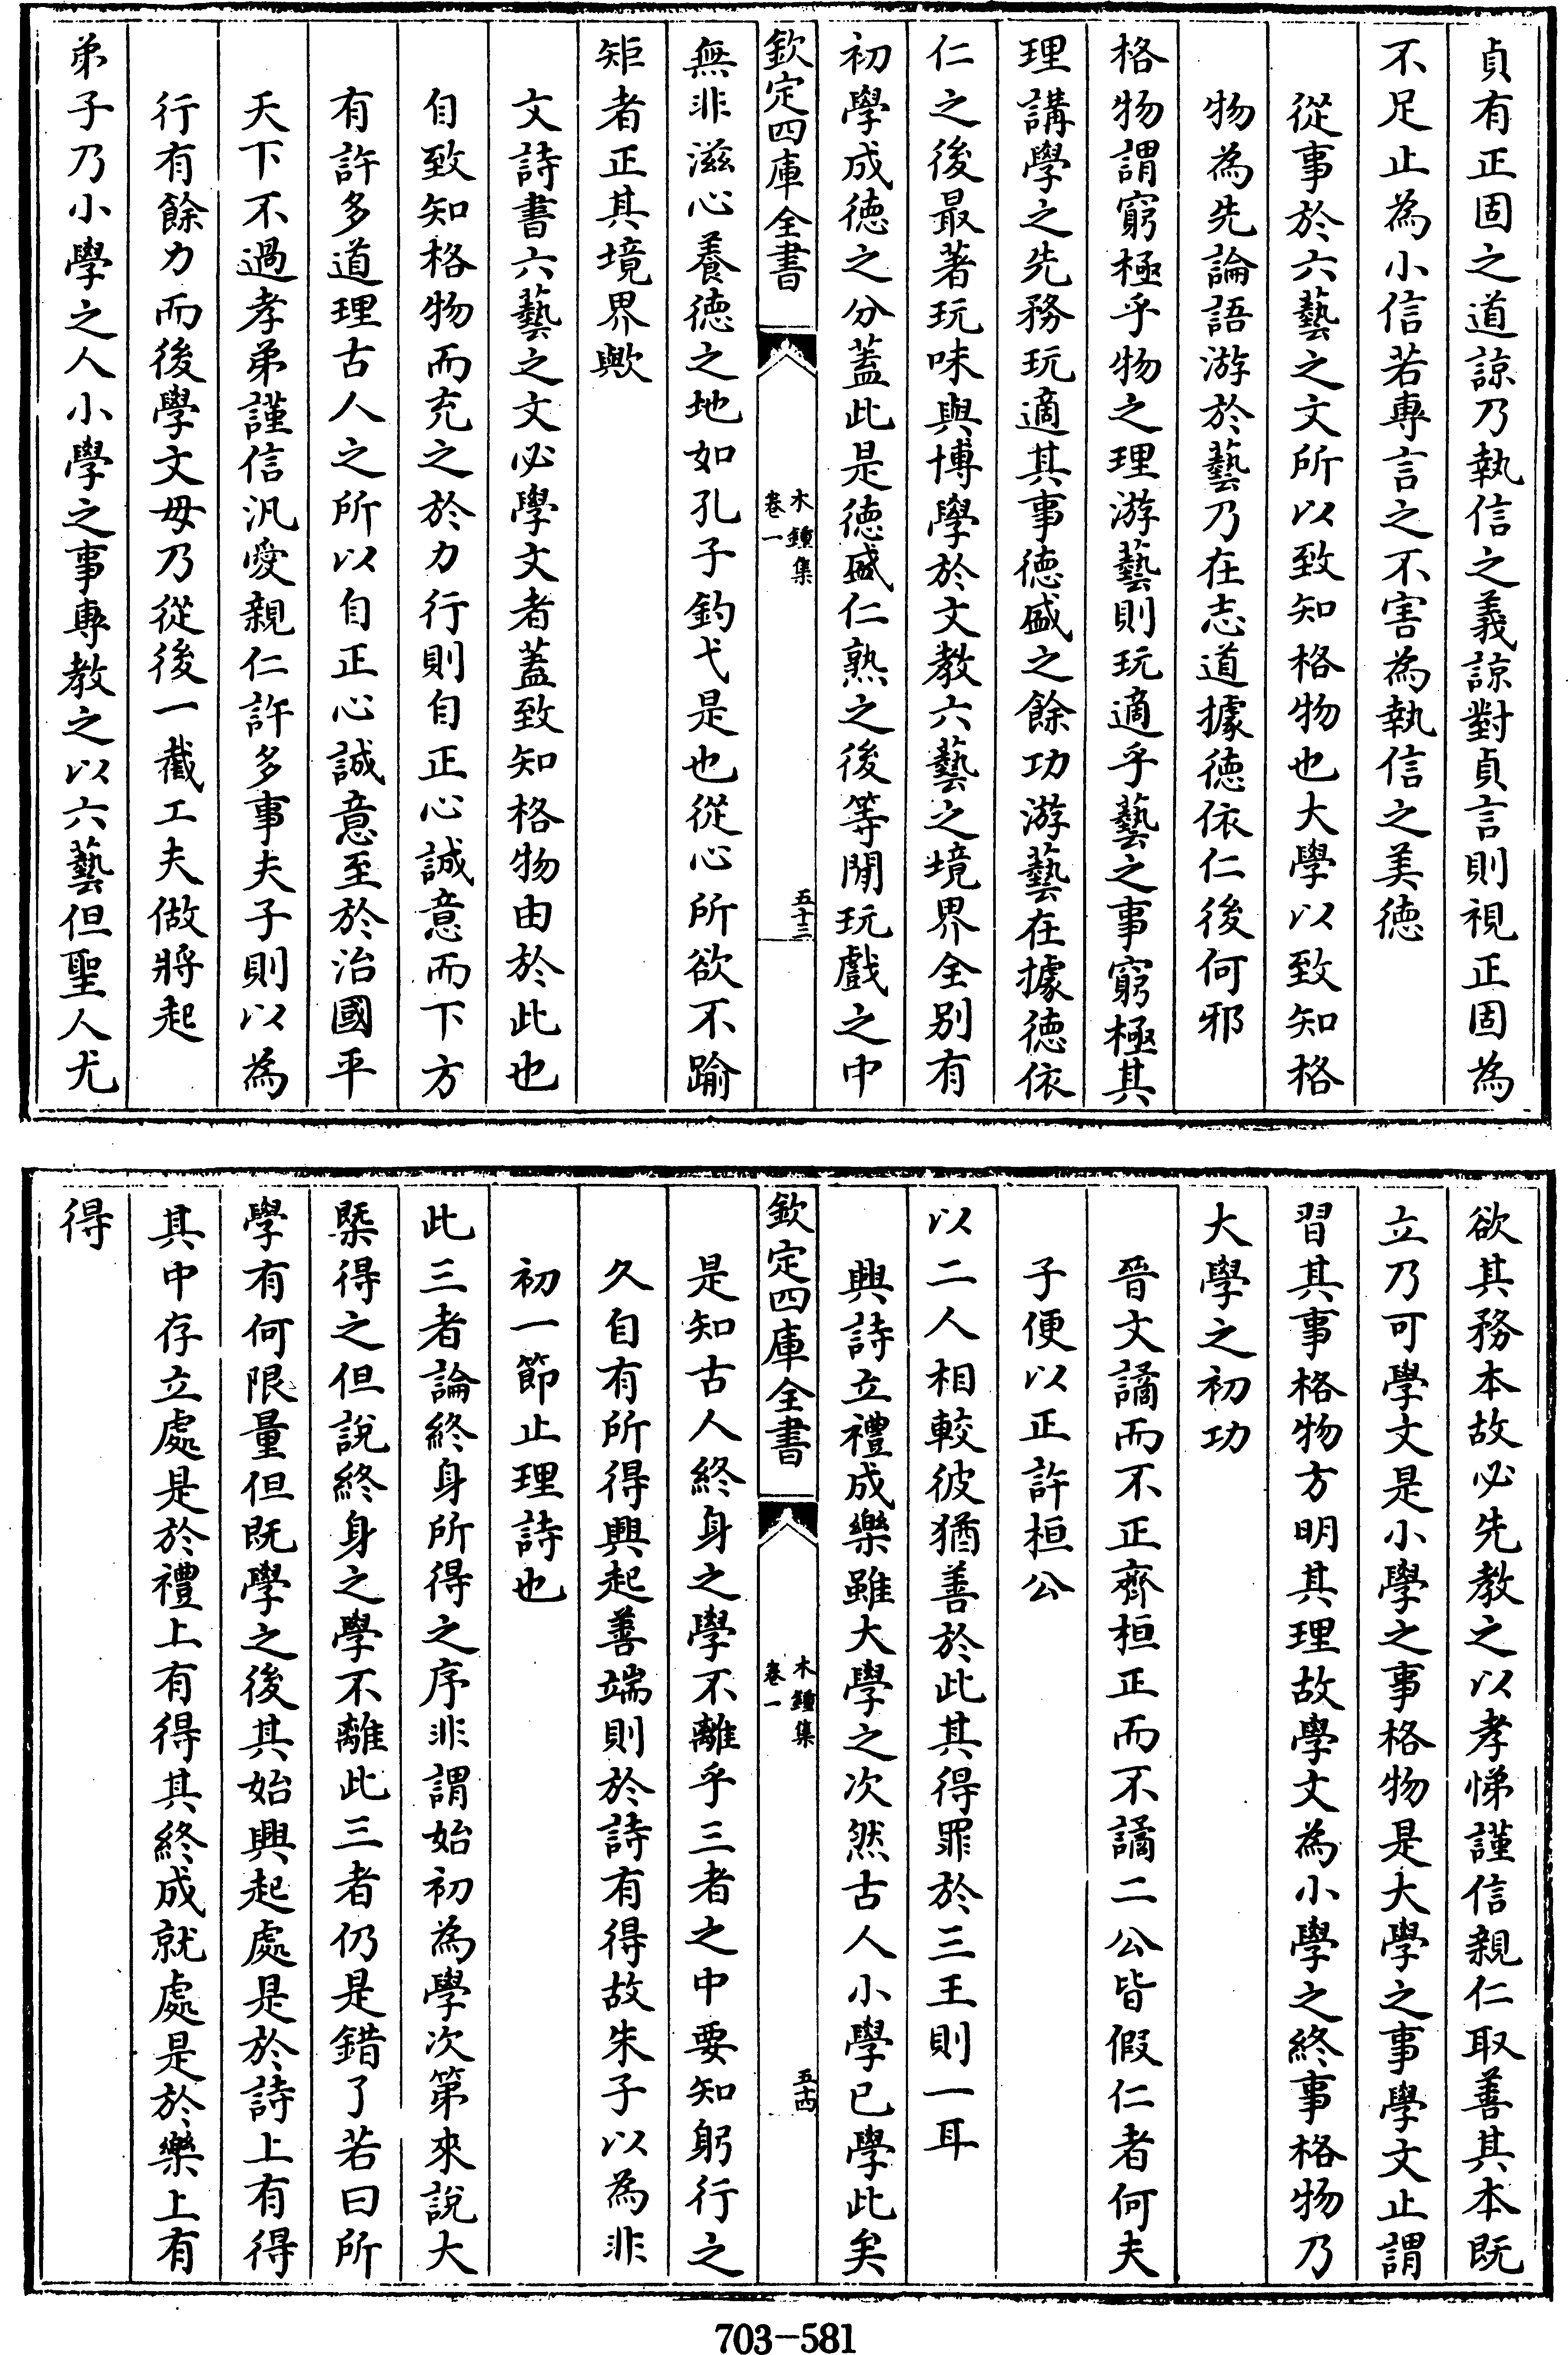 貞有正固之道諒乃執信之義諒對貞言則視正固為
不足止為小信若專言之不害為執信之美徳
從事於六藝之文所以致知格物也大學以致知格
物為先論語游於藝乃在志道據徳依仁後何邪
格物謂窮極乎物之理游藝則玩適乎藝之事窮極其
理講學之先務玩適其事徳盛之餘功游藝在據徳依
仁之後最著玩味與博學於文教六藝之境界全别有
初學成徳之分蓋此是徳盛仁熟之後等閒玩戲之中
欽定四庫全書
木鍾集
卷一
五十三
無非滋心養徳之地如孔子釣弋是也從心所欲不踰
矩者正其境界歟
文詩書六藝之文必學文者蓋致知格物由於此也
自致知格物而充之於力行則自正心誠意而下方
有許多道理古人之所以自正心誠意至於治國平
天下不過孝弟謹信汎愛親仁許多事夫子則以為
行有餘力而後學文毋乃從後一截工夫做將起
弟子乃小學之人小學之事專教之以六藝但聖人尤
欲其務本故必先教之以孝悌謹信親仁取善其本既
立乃可學文是小學之事格物是大學之事學文止謂
習其事格物方明其理故學文為小學之終事格物乃
大學之初功
晉文譎而不正齊桓正而不譎二公皆假仁者何夫
子便以正許桓公
以二人相較彼猶善於此其得罪於三王則一耳
興詩立禮成樂雖大學之次然古人小學已學此矣
欽定四庫全書
木鍾集
卷一
五十四
是知古人終身之學不離乎三者之中要知躬行之
久自有所得興起善端則於詩有得故朱子以為非
初一節止理詩也
此三者論終身所得之序非謂始初為學次第來說大
槩得之但說終身之學不離此三者仍是錯了若曰所
學有何限量但既學之後其始興起處是於詩上有得
其中存立處是於禮上有得其終成就處是於樂上有
得
703-581